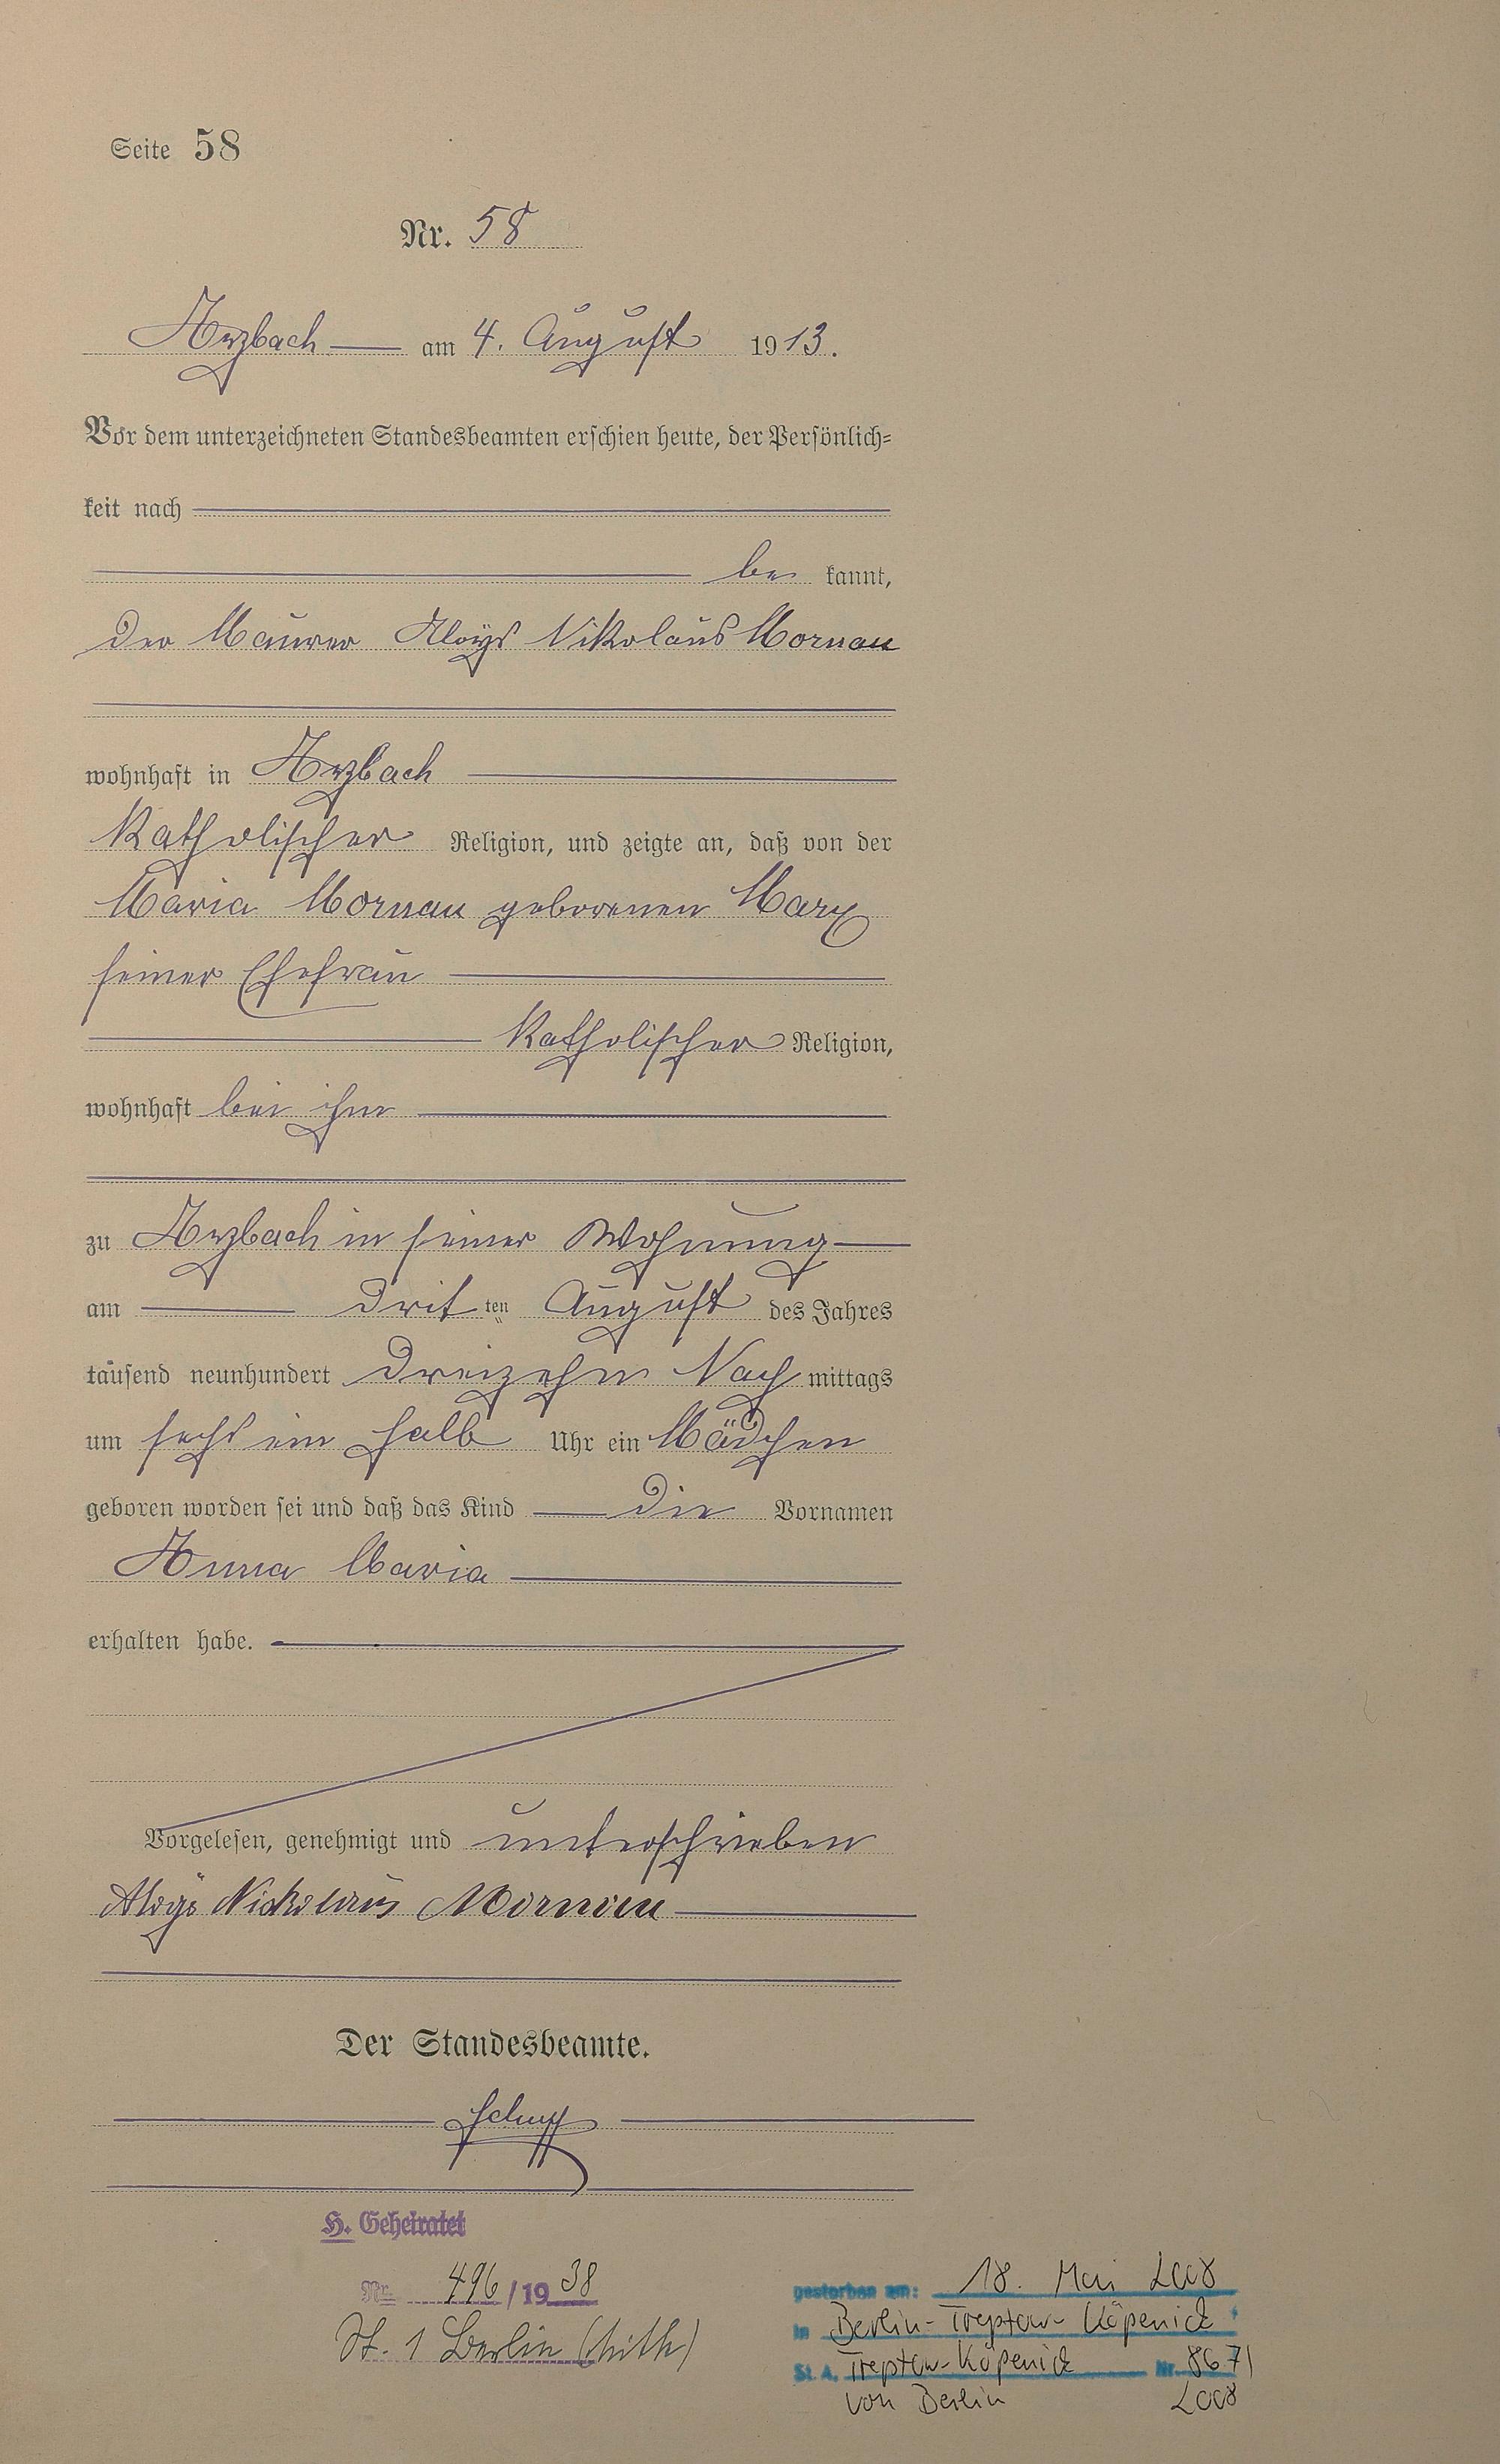 Seite 58
Nr. 58
Arzbach am 4. August 1913.
Vor dem unterzeichneten Standesbeamten erschien heute, der Persönlich-
keit nach
be kannt,
der Maurer Aloys Nikolaus Mornau
wohnhaft in Arzbach
katholischer Religion, und zeigte an, daß von der
Maria Mornau geborenen Marx
seiner Ehefrau
katholischer Religion,
wohnhaft bei ihm
zu Arzbach in seiner Wohnung
am dritten August des Jahres
tausend neunhundert dreizehn Nachmittags
um sechs ein halb Uhr ein Mädchen
geboren worden sei und daß das Kind die Vornamen
Anna Maria
erhalten habe.
Vorgelesen, genehmigt und unterschrieben
Aloys Nickolaus Mornau
Der Standesbeamte.
H. Geheiratet
Nr. 496/1938
St. 1 Berlin (Mitte)
gestorben am: 18. Mai 2008
in Berlin-Treptow-Köpenick
St. A. Treptow-Köpenick Nr. 8671
von Berlin 2008